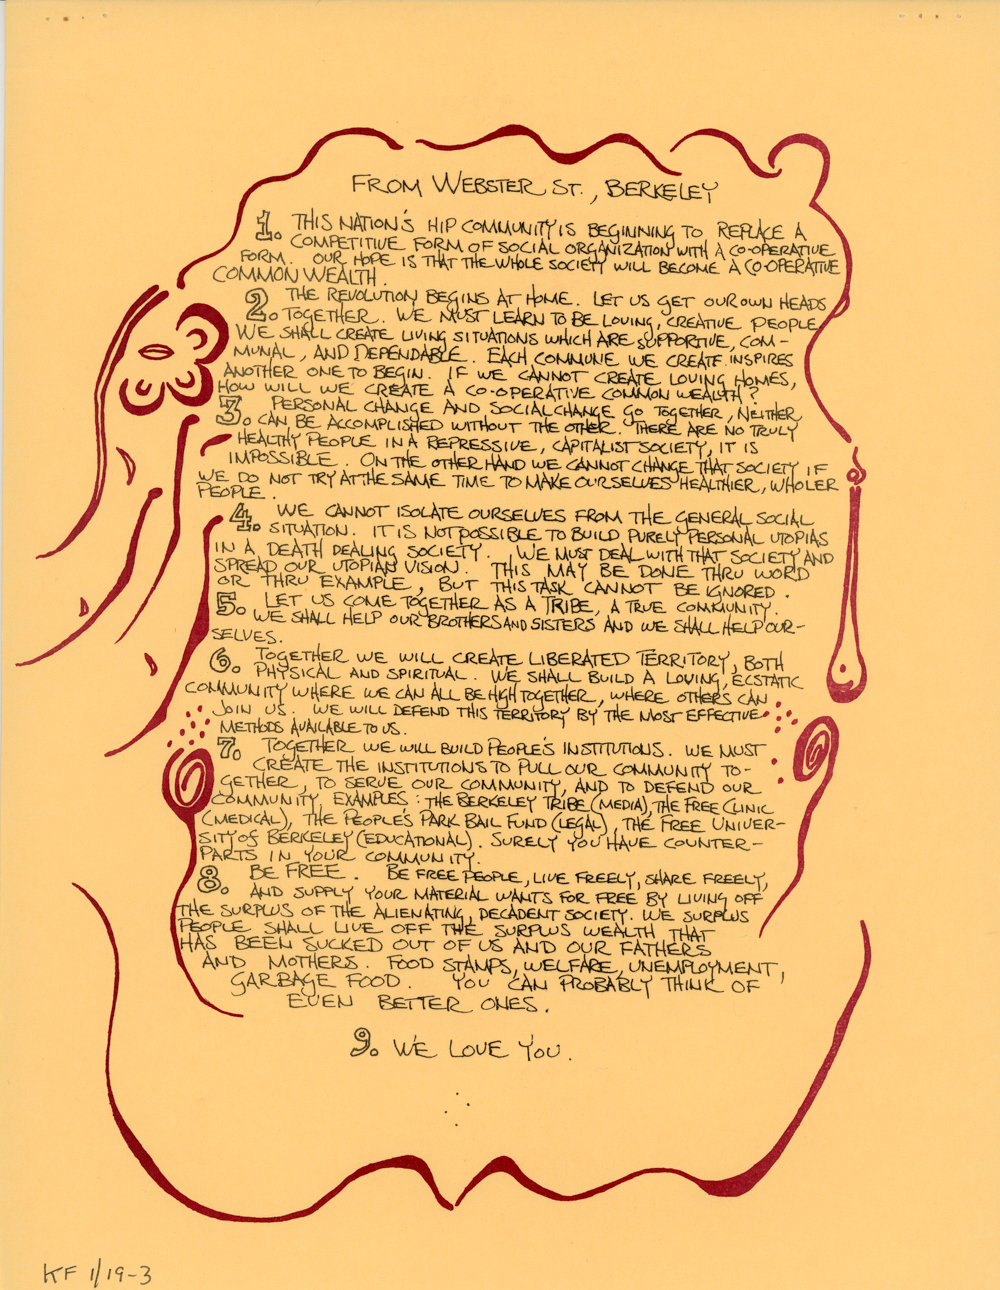 FROM WEBSTER ST., BERKELEY
1. THIS NATION'S HIP COMMUNITY IS BEGINNING TO REPLACE A
COMPETITIVE FORM OF SOCIAL ORGANIZATION WITH A CO-OPERATIVE
FORM. OUR HOPE IS THAT THE WHOLE SOCIETY WILL BECOME A CO-OPERATIVE
COMMON WEALTH.
2. THE REVOLUTION BEGINS AT HOME. LET US GET OUR OWN HEADS
TOGETHER. WE MUST LEARN TO BE LOVING, CREATIVE PEOPLE.
WE SHALL CREATE LIVING SITUATIONS WHICH ARE SUPPORTIVE, COM-
MUNAL, AND DEPENDABLE. EACH COMMUNE WE CREATE INSPIRES
ANOTHER ONE TO BEGIN. IF WE CANNOT CREATE LOVING HOMES,
HOW WILL WE CREATE A CO-OPERATIVE COMMON WEALTH?
3. PERSONAL CHANGE AND SOCIAL CHANGE GO TOGETHER, NEITHER
CAN BE ACCOMPLISHED WITHOUT THE OTHER. THERE ARE NO TRULY
HEALTHY PEOPLE IN A REPRESSIVE, CAPITALIST SOCIETY, IT IS
IMPOSSIBLE. ON THE OTHER HAND WE CANNOT CHANGE THAT SOCIETY IF
WE DO NOT TRY AT THE SAME TIME TO MAKE OURSELVES HEALTHIER, WHOLER
PEOPLE.
4. WE CANNOT ISOLATE OURSELVES FROM THE GENERAL SOCIAL
SITUATION. IT IS NOT POSSIBLE TO BUILD PURELY PERSONAL UTOPIAS
IN A DEATH DEALING SOCIETY. WE MUST DEAL WITH THAT SOCIETY AND
SPREAD OUR UTOPIAN VISION. THIS MAY BE DONE THRU WORD
OR THRU EXAMPLE, BUT THIS TASK CANNOT BE IGNORED.
5. LET US COME TOGETHER AS A TRIBE, A TRUE COMMUNITY.
WE SHALL HELP OUR BROTHERS AND SISTERS AND WE SHALL HELP OUR-
SELVES.
6. TOGETHER WE WILL CREATE LIBERATED TERRITORY, BOTH
PHYSICAL AND SPIRITUAL. WE SHALL BUILD A LOVING, ECSTATIC
COMMUNITY WHERE WE CAN ALL BE HIGH TOGETHER, WHERE OTHERS CAN
JOIN US. WE WILL DEFEND THIS TERRITORY BY THE MOST EFFECTIVE
METHODS AVAILABLE TO US.
7. TOGETHER WE WILL BUILD PEOPLE'S INSTITUTIONS. WE MUST
CREATE THE INSTITUTIONS TO PULL OUR COMMUNITY TO-
GETHER, TO SERVE OUR COMMUNITY, AND TO DEFEND OUR
COMMUNITY, EXAMPLES: THE BERKELEY TRIBE (MEDIA), THE FREE CLINIC
(MEDICAL), THE PEOPLE'S PARK BAIL FUND (LEGAL), THE FREE UNIVER-
SITY OF BERKELEY (EDUCATIONAL). SURELY YOU HAVE COUNTER-
PARTS IN YOUR COMMUNITY.
8. BE FREE. BE FREE PEOPLE, LIVE FREELY, SHARE FREELY,
AND SUPPLY YOUR MATERIAL WANTS FOR FREE BY LIVING OFF
THE SURPLUS OF THE ALIENATING, DECADENT SOCIETY. WE SURPLUS
PEOPLE SHALL LIVE OFF THE SURPLUS WEALTH THAT
HAS BEEN SUCKED OUT OF US AND OUR FATHERS
AND MOTHERS. FOOD STAMPS, WELFARE, UNEMPLOYMENT,
GARBAGE FOOD. YOU CAN PROBABLY THINK OF
EVEN BETTER ONES.
9. WE LOVE YOU.
KF 1/19-3